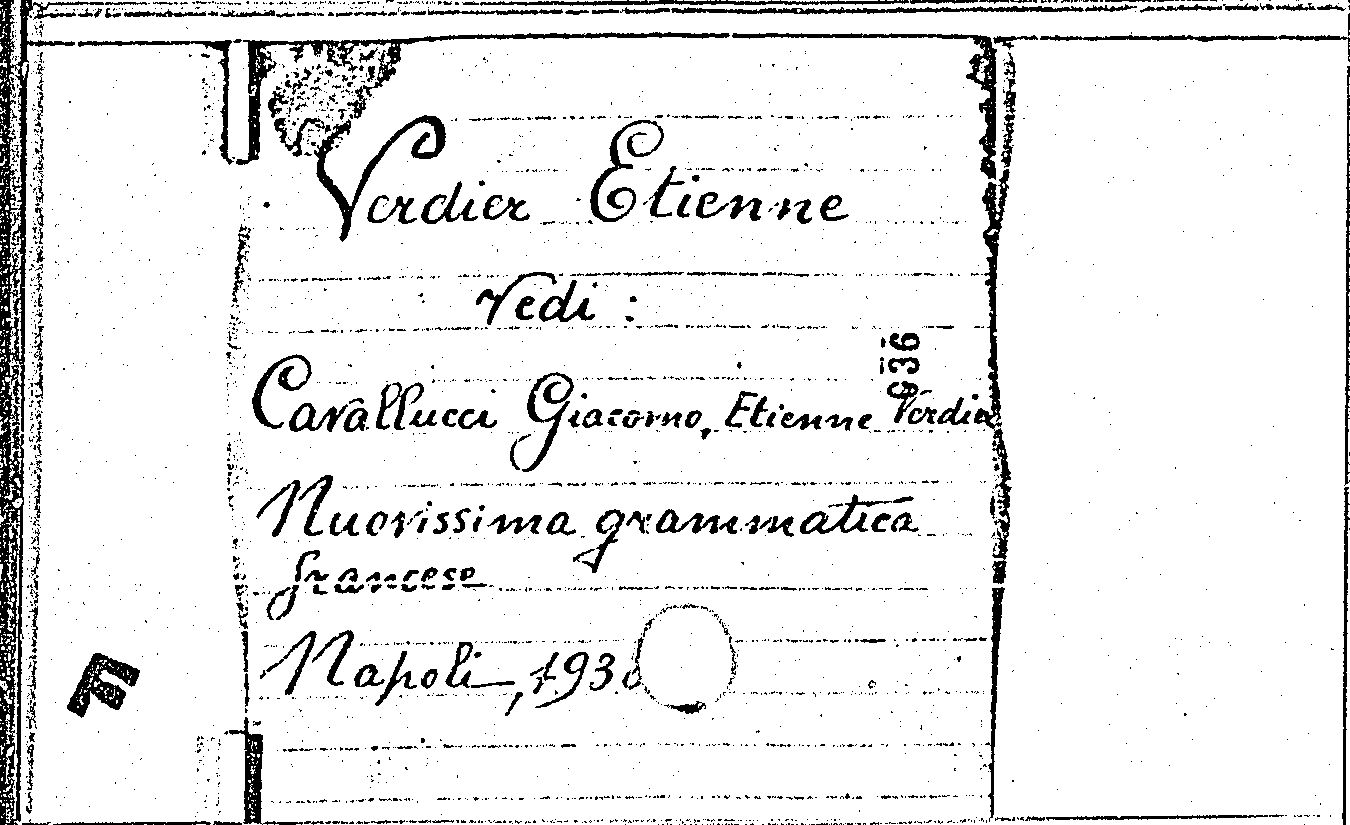 Verdier Etienne
Vedi :
936
Cavallucci Giacomo, Etienne Verdier
Nuovissima grammatica
francese
Napoli, 193
F